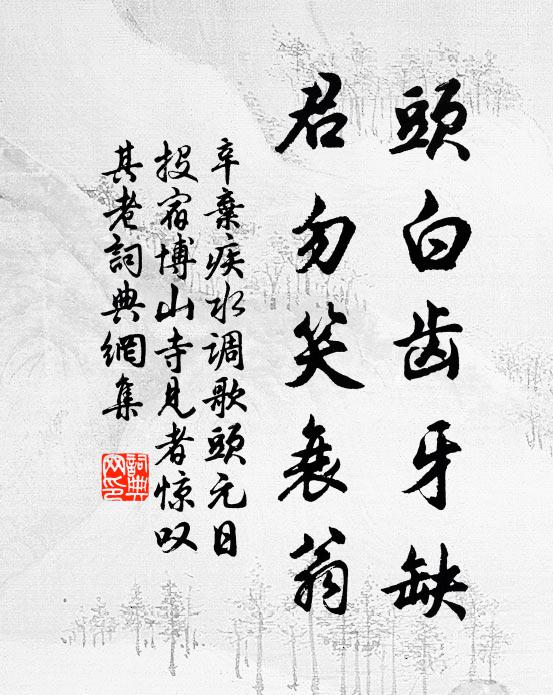 頭白齿牙缺
君勿笑衰翁
辛棄疾水调歌頭元日
投宿博山寺見者惊叹
其老詞典網集
詞典
网印